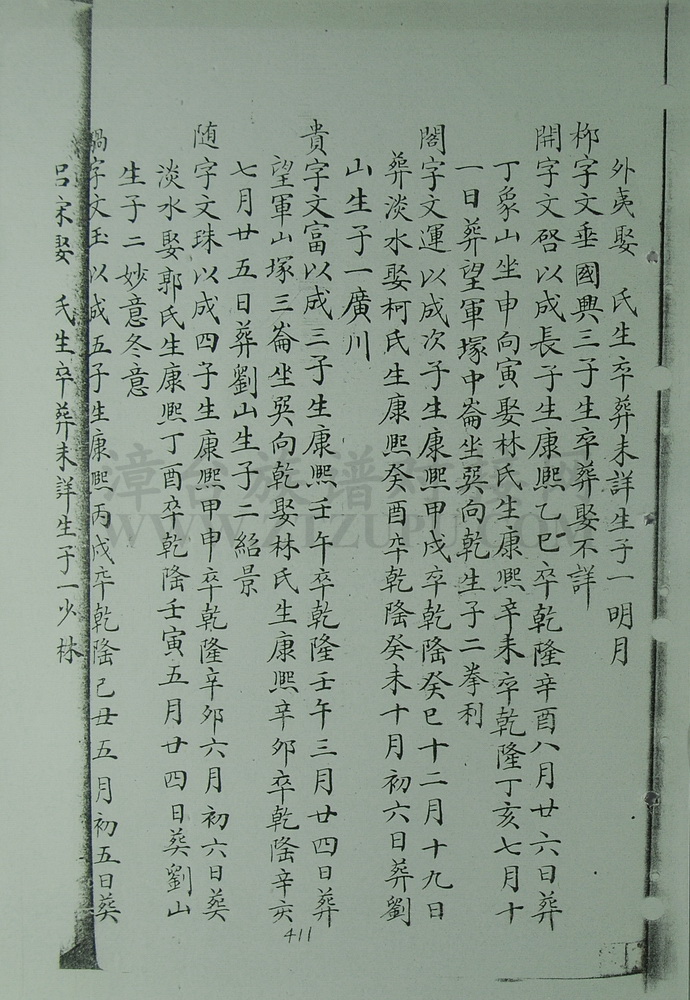 外夷娶　氏生卒葬未詳生子一明月
栁字文垂國興三子生卒葬娶不詳
開字文啓以成長子生康熙乙巳卒乾隆辛酉八月廿六日葬
丁象山坐申向寅娶林氏生康熙辛未卒乾隆丁亥七月十
一日葬望軍塚中崙坐巽向乾生子二拳利
閣字文運以成次子生康熙甲戌卒乾隆癸巳十二月十九日
葬淡水娶柯氏生康熙癸酉卒乾隆癸未十月初六日葬劉
山生子一廣川
貴字文富以成三子生康熙壬午卒乾隆壬午三月廿四日葬
望軍山塚三崙坐巽向乾娶林氏生康熙辛卯卒乾隆辛亥
七月廿五日葬劉山生子二紹景
随字文珠以成四子生康熙甲申卒乾隆辛卯六月初六日葬
淡水娶郭氏生康熙丁酉卒乾隆壬寅五月廿四日葬劉山
生子二妙意冬意
字文玉以成五子生康熙丙戌卒乾隆己丑五月初五日葬
呂宋娶　氏生卒葬未詳生子一少林
411
WWW.ZTZUPU.COM